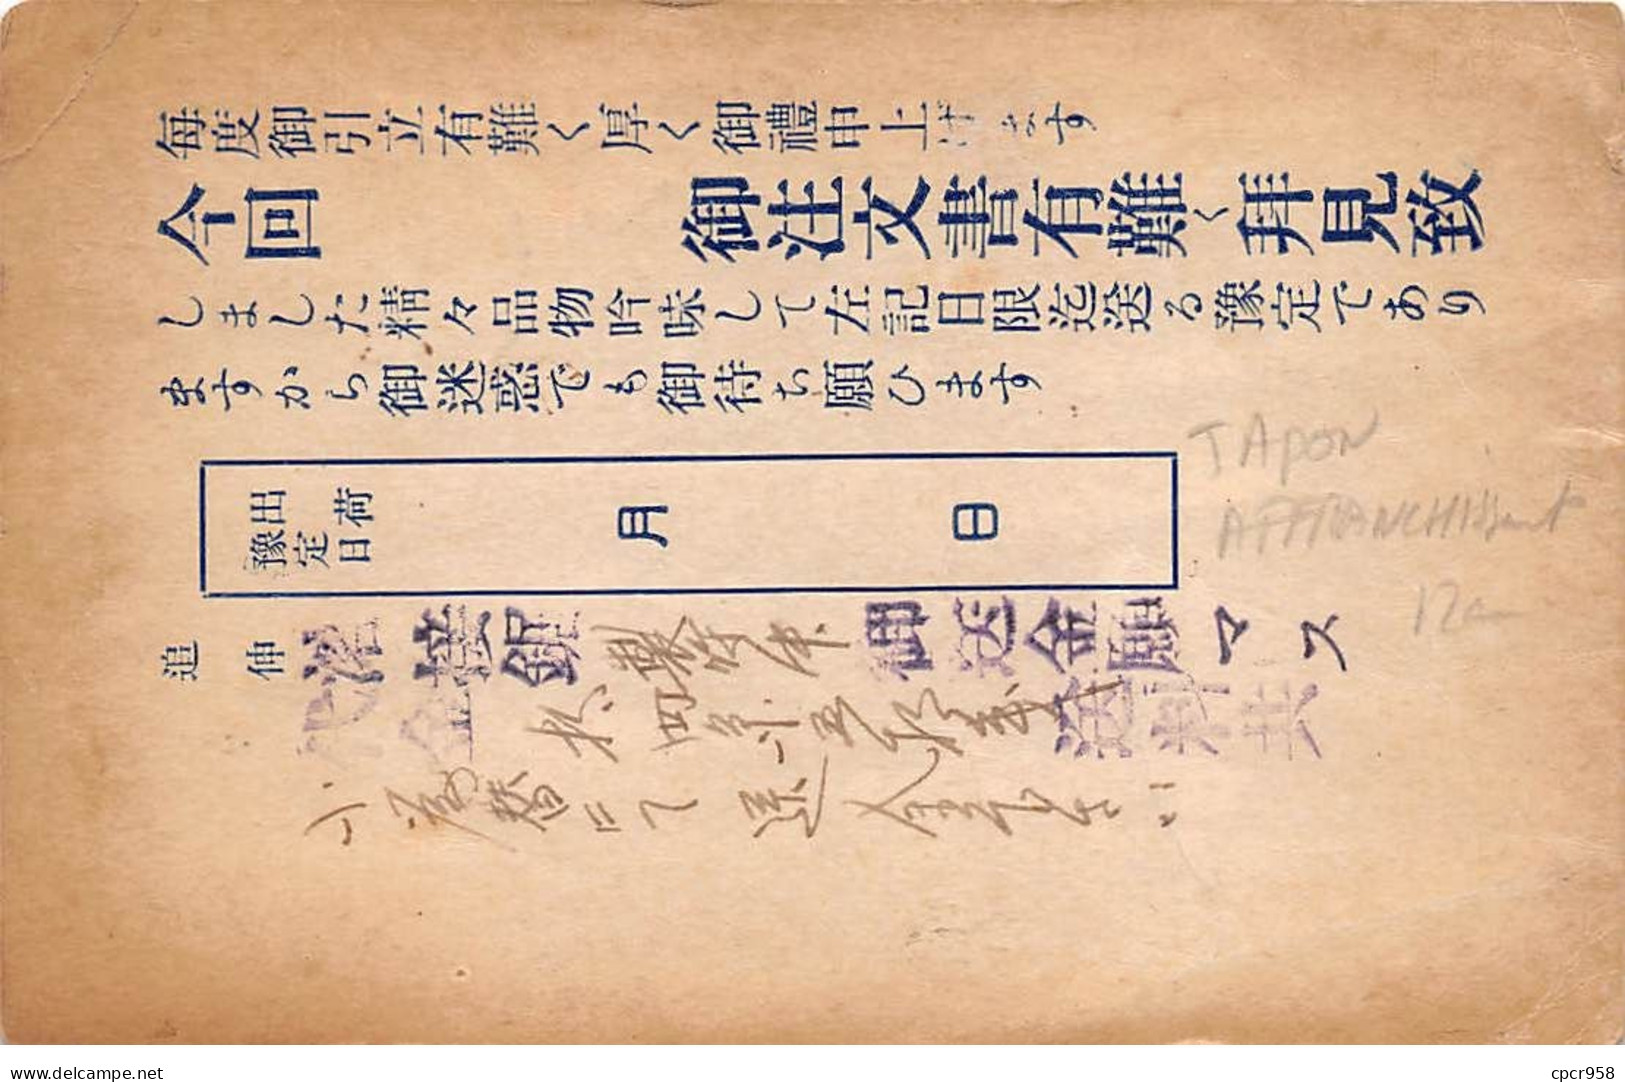 毎度御引立有難く厚く御禮申上げます
今回 御注文書有難く拝見致
しました精々品物吟味して左記日限迄送る豫定であり
ますから御迷惑でも御待ち願ひます
出荷
豫定日
月 日
追伸
御送金願マス
送料共
小為替にて
JAPON
AFFRANCHISSEMENT
delcampe.net
cpcr958